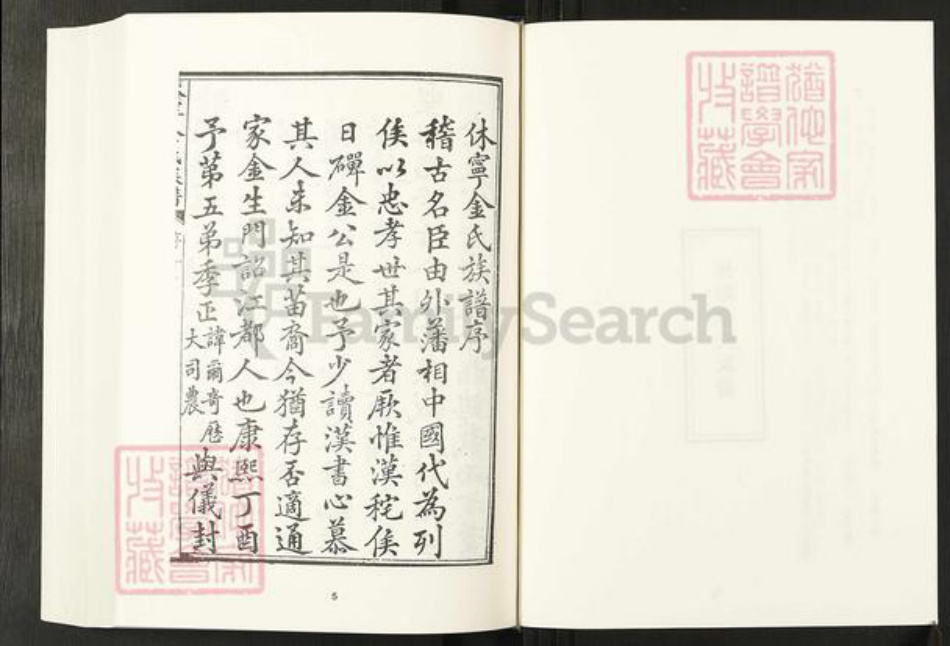 休寧金氏族譜序
稽古名臣由外藩相中國代為列
侯以忠孝世其家者厥惟漢秺侯
日磾金公是也予少讀漢書心慕
其人未知其苗裔今猶存否適通
家金生門詔江都人也康熙丁酉
予第五弟季正諱爾奇歷大司農與儀封
5
猶他家譜學會收藏
猶他家譜學會收藏
FamilySearch